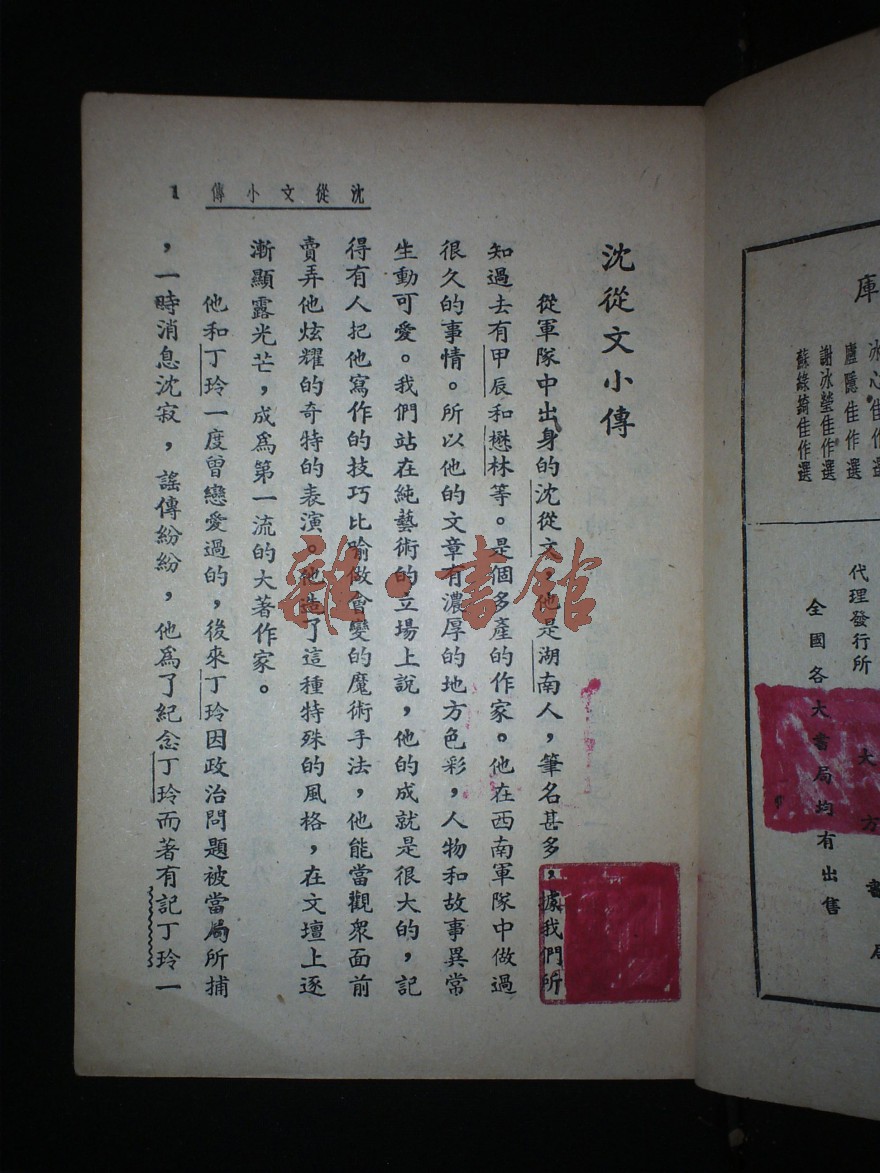 庫
冰心佳作選
廬隱佳作選
謝冰瑩佳作選
蘇綠綺佳作選
代理發行所
大方書局
全國各大書局均有出售
沈從文小傳
1
沈從文小傳
從軍隊中出身的沈從文，他是湖南人，筆名甚多，據我們所
知過去有甲辰和懋林等。是個多產的作家。他在西南軍隊中做過
很久的事情。所以他的文章有濃厚的地方色彩，人物和故事異常
生動可愛。我們站在純藝術的立場上說，他的成就是很大的，記
得有人把他寫作的技巧比喻做會變的魔術手法，他能當觀衆面前
賣弄他炫耀的奇特的表演。他造了這種特殊的風格，在文壇上逐
漸顯露光芒，成爲第一流的大著作家。
他和丁玲一度曾戀愛過的，後來丁玲因政治問題被當局所捕
，一時消息沈寂，謠傳紛紛，他爲了紀念丁玲而著有記丁玲一
雜·書館